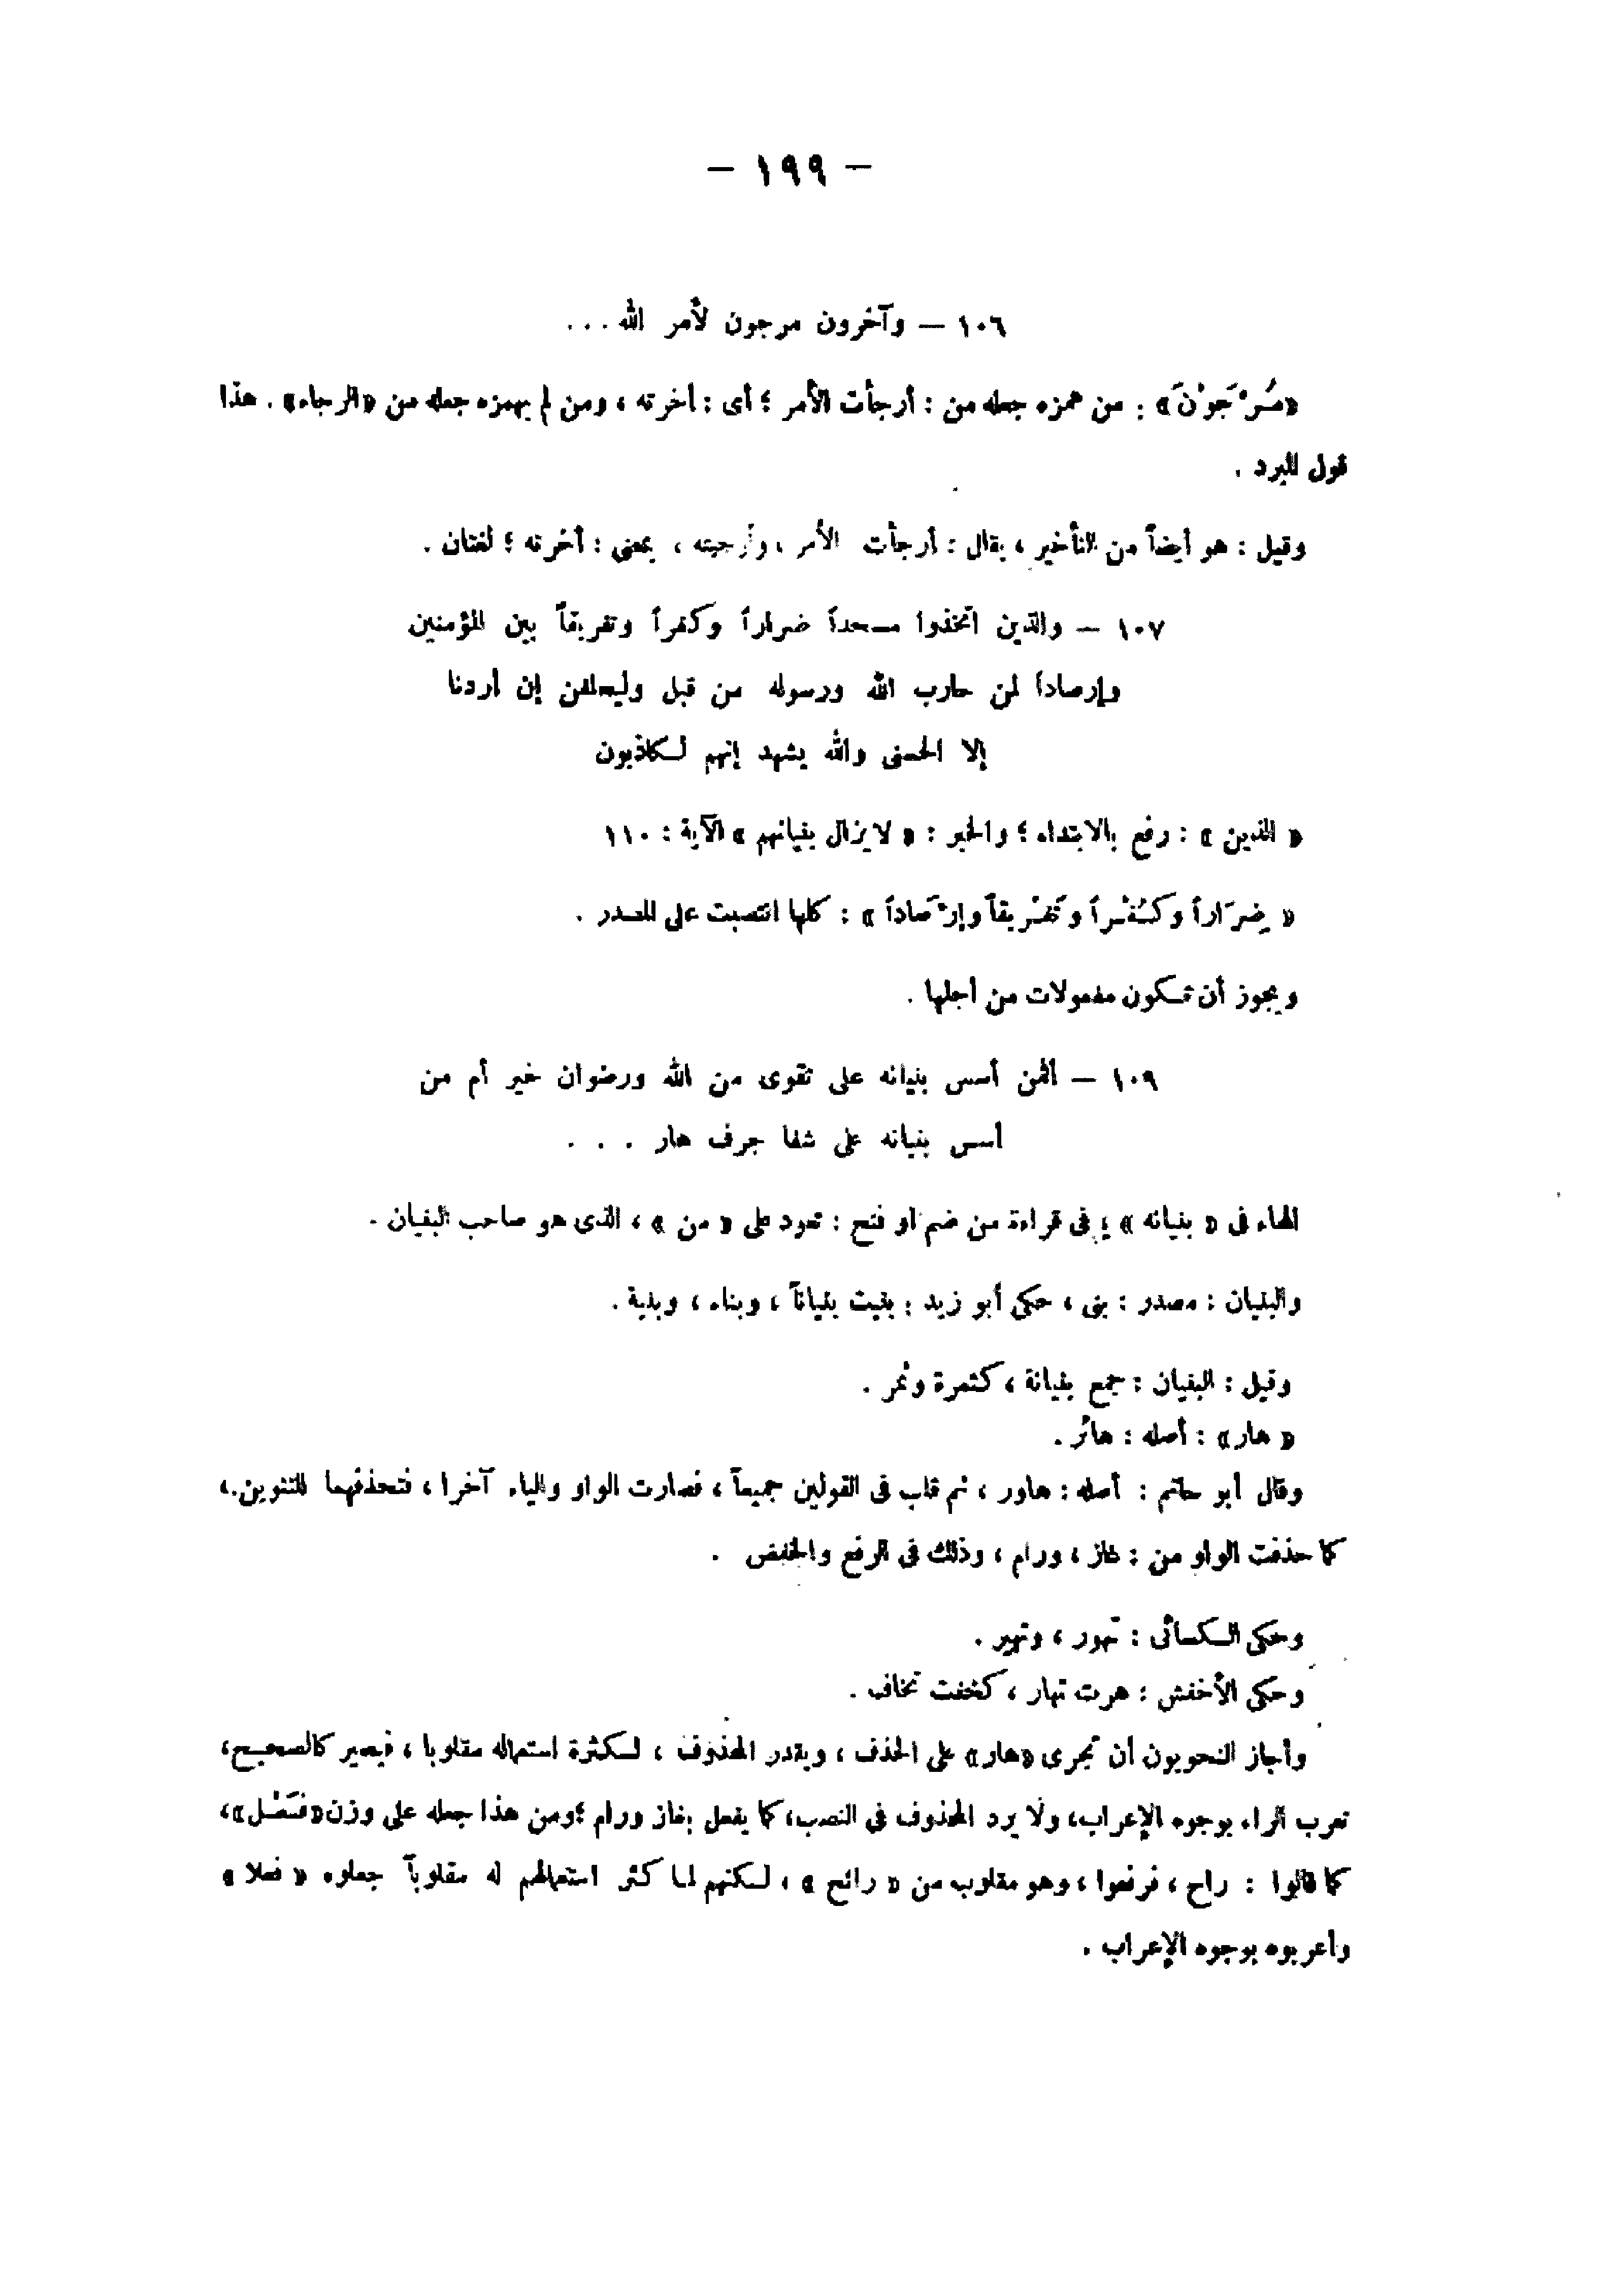 – ١٩٩ –
١٠٦ – وآخرون مرجون لأمر الله ...
«مُرْجَوْنَ» : من همزه جعله من : أرجأت الأمر ؛ أى : أخرته ، ومن لم يهمزه جعله من «الرجاء» . هذا
قول المبرد .
وقيل : هو أيضاً من التأخير ، يقال : أرجأت الأمر ، وأرجيته ، بمعنى : أخرته ؛ لغتان .
١٠٧ – والذين اتخذوا مسجداً ضراراً وكفراً وتفريقاً بين المؤمنين
وإرصاداً لمن حارب الله ورسوله من قبل وليحلفن إن أردنا
إلا الحسنى والله يشهد إنهم لكاذبون
« الذين » : رفع بالابتداء ؛ والخبر : « لا يزال بنيانهم » الآية : ١١٠
« ضِرَاراً وكُفْراً وتَفْرِيقاً وإرْصَاداً » : كلها انتصبت على المصدر .
ويجوز أن تكون مفعولات من أجلها .
١٠٩ – أفمن أسس بنيانه على تقوى من الله ورضوان خير أم من
أسس بنيانه على شفا جرف هار . . .
الهاء فى « بنيانه » ؛ فى قراءة من ضم او فتح : تعود على « من » ، الذى هو صاحب البنيان .
والبنيان : مصدر : بنى ، حكى أبو زيد : بنيت بنياناً ، وبناء ، وبنية .
وقيل : البنيان : جمع بنيانة ، كثمرة وثمر .
« هار» : أصله : هائر .
وقال أبو حاتم : أصله : هاور ، ثم قلب فى القولين جميعاً ، فصارت الواو والياء آخرا ، فتحذفهما للتنوين ،
كما حذفت الواو من : غاز ، ورام ، وذلك فى الرفع والخفض .
وحكى الكسائى : تهور ، وتهير .
وحكى الأخفش : هرت تهار ، كخفت تخاف .
وأجاز النحويون أن تجرى «هار» على الحذف ، ويقدر المحذوف ، لكثرة استعماله مقلوبا ، فيصير كالصحيح ،
تعرب الراء بوجوه الإعراب، ولا يرد المحذوف فى النصب، كما يفعل بغاز ورام ؛ ومن هذا جعله على وزن «فَعَل» ،
كما قالوا : راح ، فرفعوا ، وهو مقلوب من « رائح » ، لكنهم لما كثر استعمالهم له مقلوباً جعلوه « فعلا »
وأعربوه بوجوه الإعراب .